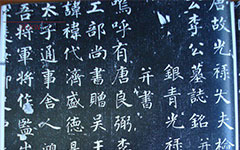 唐故光禄大夫檢
公李公墓誌銘
銀青光禄
并書
嗚呼有唐良弼李
工部尚書贈吳王
諱禕代濟盛德
太子通事舍人
吾將軍將作監